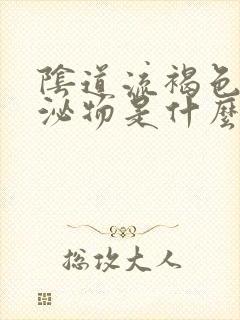 陰道流褐色
泌物是什麼
總攻大人